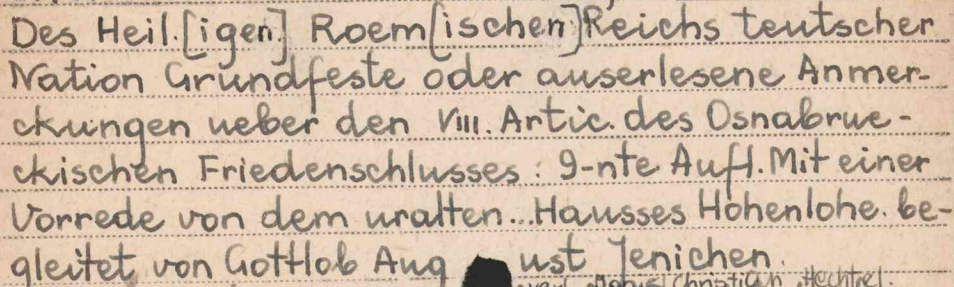 Des Heil.[igen] Roem[ischen] Reichs teutscher
Nation Grundfeste oder auserlesene Anmer-
ckungen ueber den VIII. Artic. des Osnabrue-
ckischen Friedenschlusses : 9-nte Aufl. Mit einer
Vorrede von dem uralten...Hausses Hohenlohe. be-
gleitet von Gottlob Aug ust Jenichen.
Christian Hechtel.